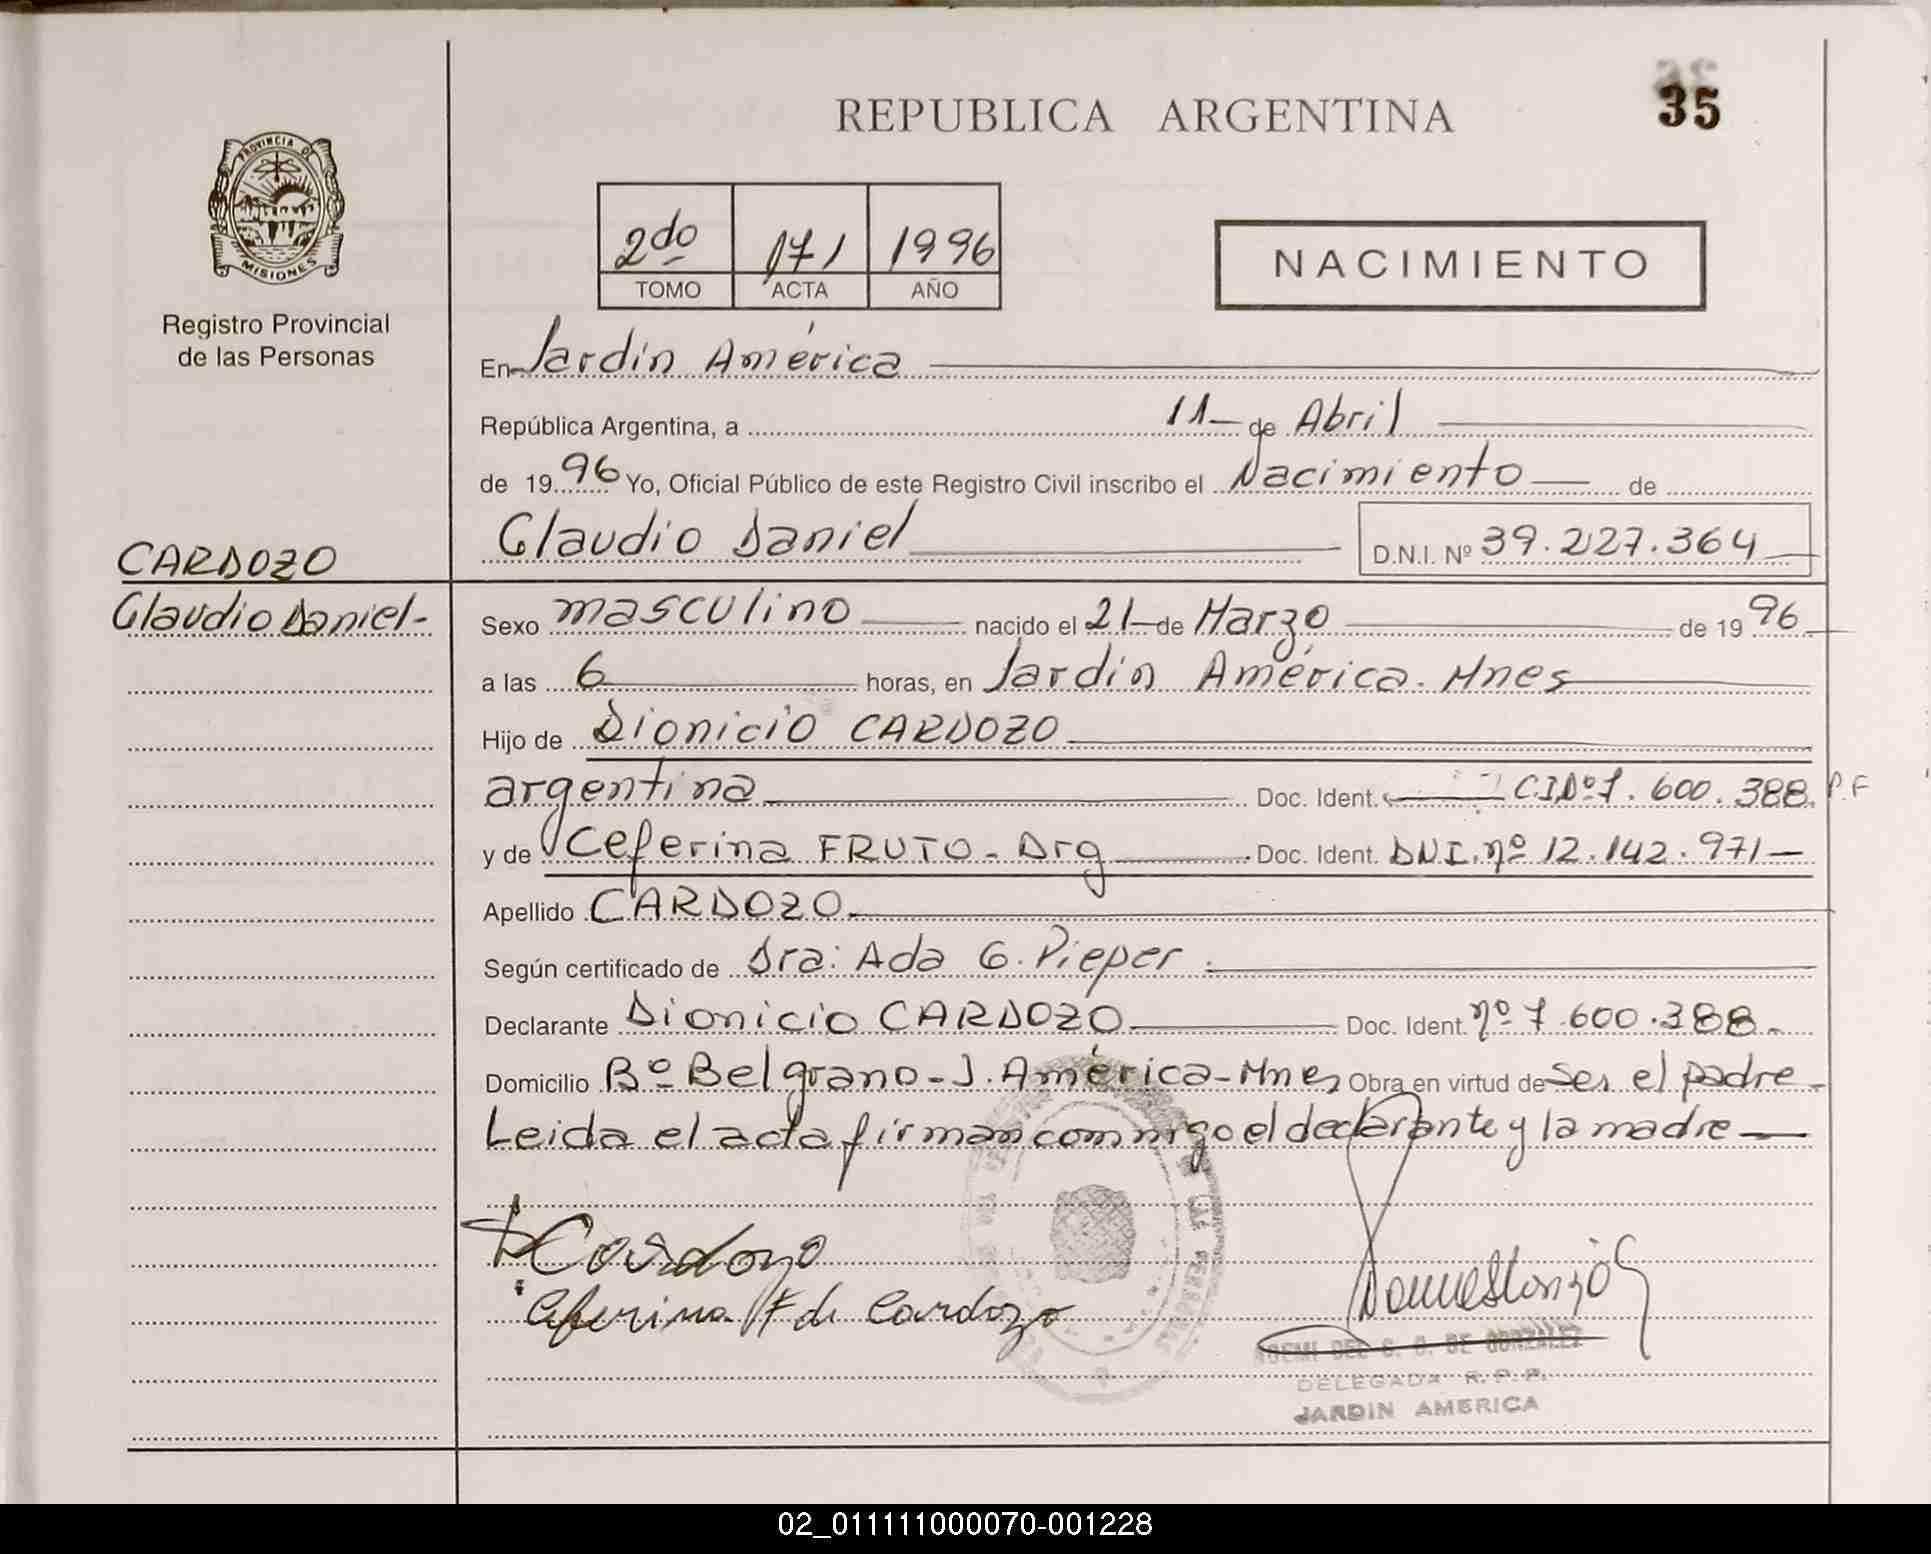 REPUBLICA ARGENTINA
35
PROVINCIA DE
MISIONES
Registro Provincial
de las Personas
2do 171 1996
TOMO ACTA AÑO
NACIMIENTO
En Jardín América
República Argentina, a 11 de Abril
de 1996 Yo, Oficial Público de este Registro Civil inscribo el Nacimiento de
Claudio Daniel D.N.I. Nº 39.227.364
CARDOZO
Claudio Daniel-
Sexo masculino nacido el 21 de Marzo de 1996
a las 6 horas, en Jardín América. Mnes
Hijo de Dionicio CARDOZO
argentina Doc. Ident. C.I.Nº 7.600.388. P.F
y de Ceferina FRUTO - Arg Doc. Ident. DNI. nº 12.142.971
Apellido CARDOZO
Según certificado de Dra: Ada G. Pieper.
Declarante Dionicio CARDOZO Doc. Ident. nº 7.600.388.
Domicilio Bº Belgrano - J. América - Mnes Obra en virtud de ser el padre
Leida el acta firman conmigo el declarante y la madre
D Cardozo
Ceferina F de Cardozo
NOEMI DEL C. G. DE GONZALEZ
DELEGADA R.P.P.
JARDIN AMERICA
02_011111000070-001228